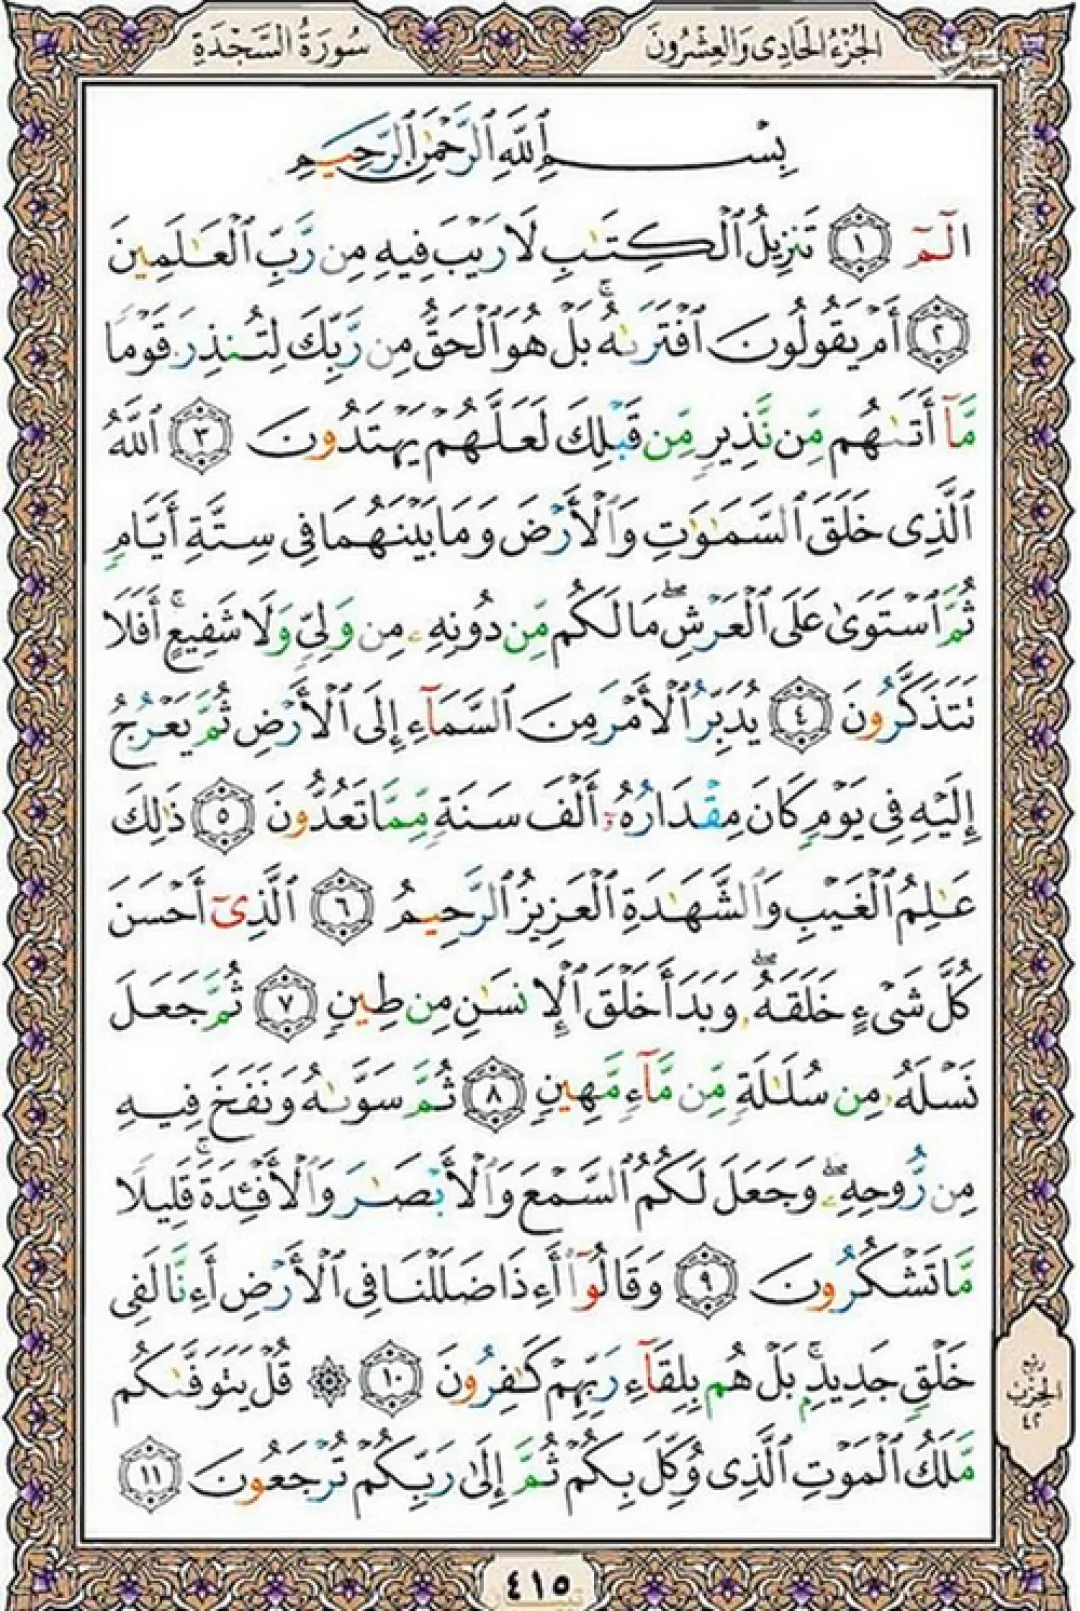 الجُزْءُ الحَادِى وَالعِشْرُونَ
سُورَةُ السَّجْدَةِ
بِسْمِ ٱللَّهِ ٱلرَّحْمَٰنِ ٱلرَّحِيمِ
الٓمٓ ١ تَنزِيلُ ٱلْكِتَٰبِ لَا رَيْبَ فِيهِ مِن رَّبِّ ٱلْعَٰلَمِينَ
٢ أَمْ يَقُولُونَ ٱفْتَرَىٰهُ ۚ بَلْ هُوَ ٱلْحَقُّ مِن رَّبِّكَ لِتُنذِرَ قَوْمًا
مَّآ أَتَىٰهُم مِّن نَّذِيرٍ مِّن قَبْلِكَ لَعَلَّهُمْ يَهْتَدُونَ ٣ ٱللَّهُ
ٱلَّذِى خَلَقَ ٱلسَّمَٰوَٰتِ وَٱلْأَرْضَ وَمَا بَيْنَهُمَا فِى سِتَّةِ أَيَّامٍ
ثُمَّ ٱسْتَوَىٰ عَلَى ٱلْعَرْشِ ۖ مَا لَكُم مِّن دُونِهِۦ مِن وَلِىٍّ وَلَا شَفِيعٍ ۚ أَفَلَا
تَتَذَكَّرُونَ ٤ يُدَبِّرُ ٱلْأَمْرَ مِنَ ٱلسَّمَآءِ إِلَى ٱلْأَرْضِ ثُمَّ يَعْرُجُ
إِلَيْهِ فِى يَوْمٍ كَانَ مِقْدَارُهُۥٓ أَلْفَ سَنَةٍ مِّمَّا تَعُدُّونَ ٥ ذَٰلِكَ
عَٰلِمُ ٱلْغَيْبِ وَٱلشَّهَٰدَةِ ٱلْعَزِيزُ ٱلرَّحِيمُ ٦ ٱلَّذِىٓ أَحْسَنَ
كُلَّ شَىْءٍ خَلَقَهُۥ ۖ وَبَدَأَ خَلْقَ ٱلْإِنسَٰنِ مِن طِينٍ ٧ ثُمَّ جَعَلَ
نَسْلَهُۥ مِن سُلَٰلَةٍ مِّن مَّآءٍ مَّهِينٍ ٨ ثُمَّ سَوَّىٰهُ وَنَفَخَ فِيهِ
مِن رُّوحِهِۦ ۖ وَجَعَلَ لَكُمُ ٱلسَّمْعَ وَٱلْأَبْصَٰرَ وَٱلْأَفْـِٔدَةَ ۚ قَلِيلًا
مَّا تَشْكُرُونَ ٩ وَقَالُوٓا۟ أَءِذَا ضَلَلْنَا فِى ٱلْأَرْضِ أَءِنَّا لَفِى
خَلْقٍ جَدِيدٍۭ ۚ بَلْ هُم بِلِقَآءِ رَبِّهِمْ كَٰفِرُونَ ١٠ ۞ قُلْ يَتَوَفَّىٰكُم
مَّلَكُ ٱلْمَوْتِ ٱلَّذِى وُكِّلَ بِكُمْ ثُمَّ إِلَىٰ رَبِّكُمْ تُرْجَعُونَ ١١
ربع
الحزب
٤٢
٤١٥